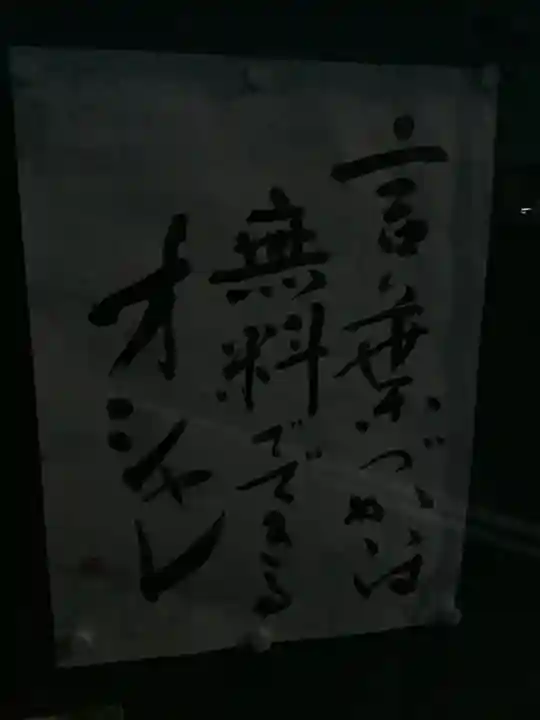 言葉づかいは
無料でできる
オシャレ